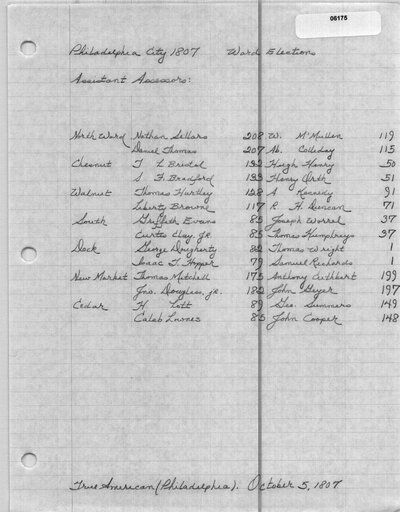 06175
Philadelphia City 1807 Ward Elections
Assistant Assessors:
North Ward Nathan Sellars 208 W. McMullen 119
Daniel Thomas 207 Ab. Colladay 115
Chesnut T L Bristol 132 Hugh Henry 50
S. F. Bradford 133 Henry Orth 51
Walnut Thomas Hurtley 128 A Kennedy 91
Liberty Browne 117 R H Duncan 71
South Griffith Evans 85 Joseph Worrel 37
Curtis Clay, Jr. 85 Thomas Humphreys 37
Dock George Dougherty 82 Thomas Wright 1
Isaac T. Hopper 79 Samuel Richards 1
New Market Thomas Mitchell 175 Anthony Cuthbert 199
Jno. Douglass, jr. 182 John Geyer 197
Cedar H Lott 89 Geo. Summers 149
Caleb Lownes 85 John Cooper 148
True American (Philadelphia). October 5, 1807